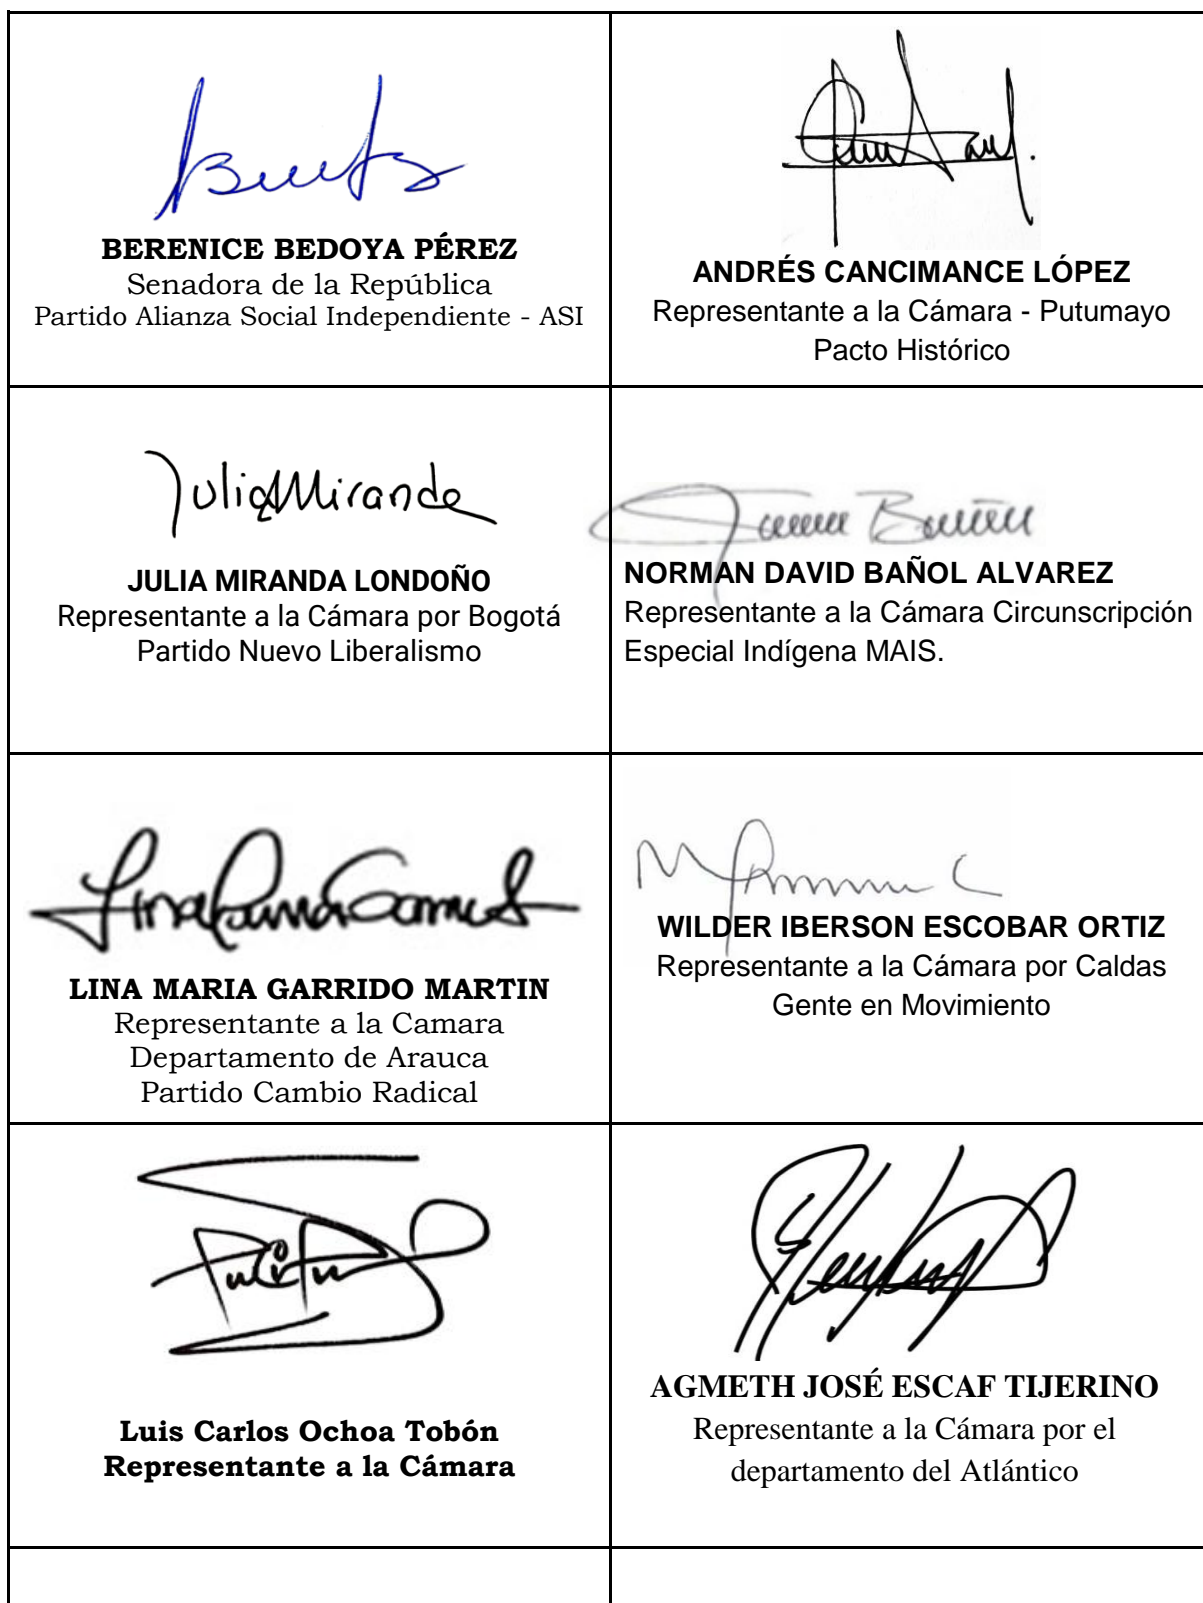 BERENICE BEDOYA PÉREZ
Senadora de la República
Partido Alianza Social Independiente - ASI
ANDRÉS CANCIMANCE LÓPEZ
Representante a la Cámara - Putumayo
Pacto Histórico
JuliaMiranda
JULIA MIRANDA LONDOÑO
Representante a la Cámara por Bogotá
Partido Nuevo Liberalismo
NORMAN DAVID BAÑOL ALVAREZ
Representante a la Cámara Circunscripción
Especial Indígena MAIS.
LINA MARIA GARRIDO MARTIN
Representante a la Camara
Departamento de Arauca
Partido Cambio Radical
WILDER IBERSON ESCOBAR ORTIZ
Representante a la Cámara por Caldas
Gente en Movimiento
Luis Carlos Ochoa Tobón
Representante a la Cámara
AGMETH JOSÉ ESCAF TIJERINO
Representante a la Cámara por el
departamento del Atlántico